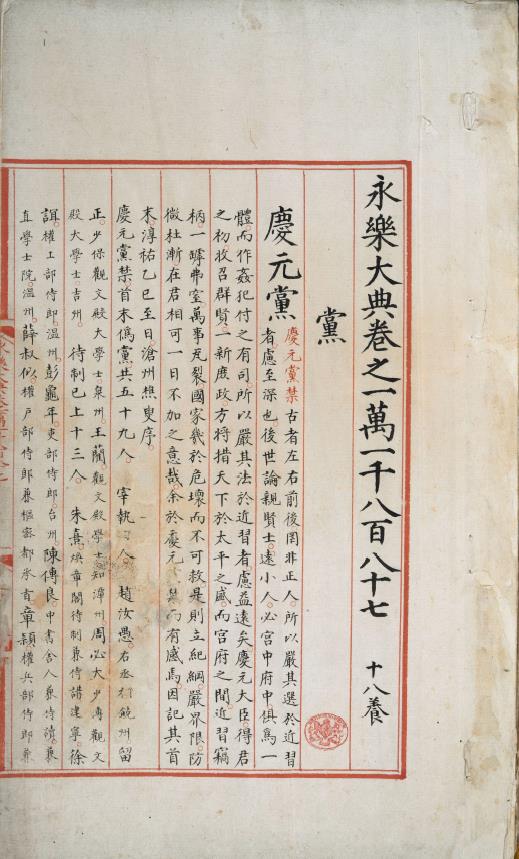 永樂大典卷之一萬一千八百八十七 十八養
黨
慶元黨 慶元黨禁 古者左右前後罔非正人。所以嚴其選於近習
者。慮至深也。後世論親賢士。遠小人。必宮中府中。俱為一
體。而作姦犯付之有司。所以嚴其法於近習者慮益遠矣。慶元大臣。得君
之初。收召群賢。一新庶政。方將措天下於太平之盛。而宮府之間。近習竊
柄。一罅弗窒。萬事瓦裂。國家幾於危壞而不可救。是則立紀綱。嚴界限。防
微杜漸。在君相可一日不加之意哉。余於慶元 禁而有感焉。因記其首
末。淳祐乙巳至日。滄州樵叟序。
慶元黨禁。首末偽黨共五十九人。 宰執 人。 趙汝愚。右丞相饒州留
正。少保觀文殿大學士泉州。王藺。觀文殿學士知潭州周必大。少傅觀文
殿大學士。吉州。 待制已上十三人。 朱熹。煥章閣待制兼侍講建寧。徐
誼。權工部侍郎。溫州。彭龜年。吏部侍郎。台州。陳傅良。中書舍人兼侍讀。兼
直學士院。溫州。薛叔似。權戶部侍郎兼樞密都承旨。章穎。權兵部侍郎兼